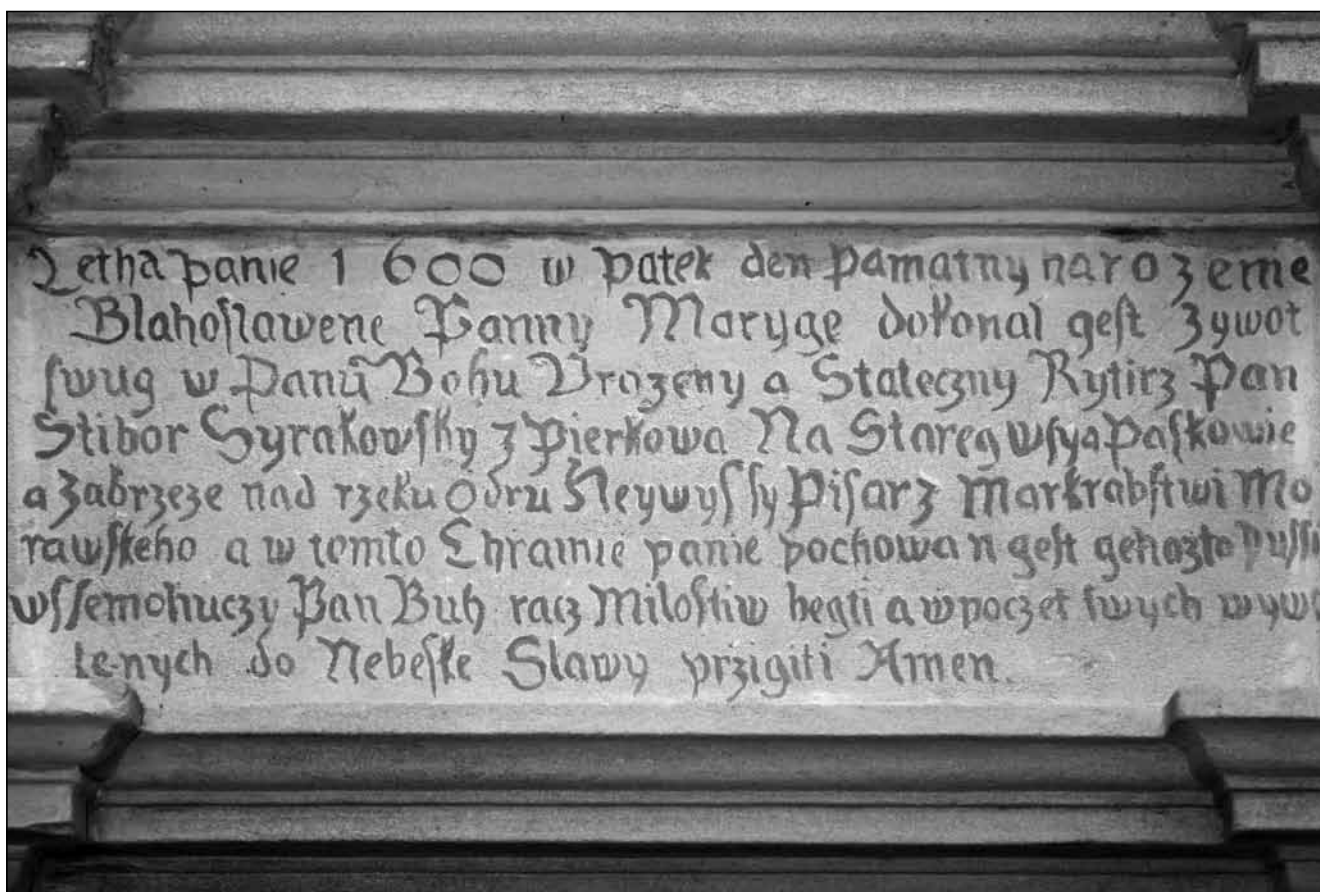 Letha panie 1600 w patek den pamatny narozeme
Blahoſlawene Panny Maryge dokonal geſt zywot
ſwug w Panů Bohu Vrozeny a Stateczny Rytirz Pan
Stibor Syrakowſky z Pierkowa Na Stareg wſy a Paſkowie
a Zabrzeze nad rzeku Odru Neywyſſy Piſarz Markrabſtwi Mo
rawſkeho a w tomto Chramie panie pochowan geſt gehozto
wſſemohuczy Pan Buh racz Miloſtiw begti a w poczet ſwych
lenych do Nebeſke Slawy przigiti Amen.